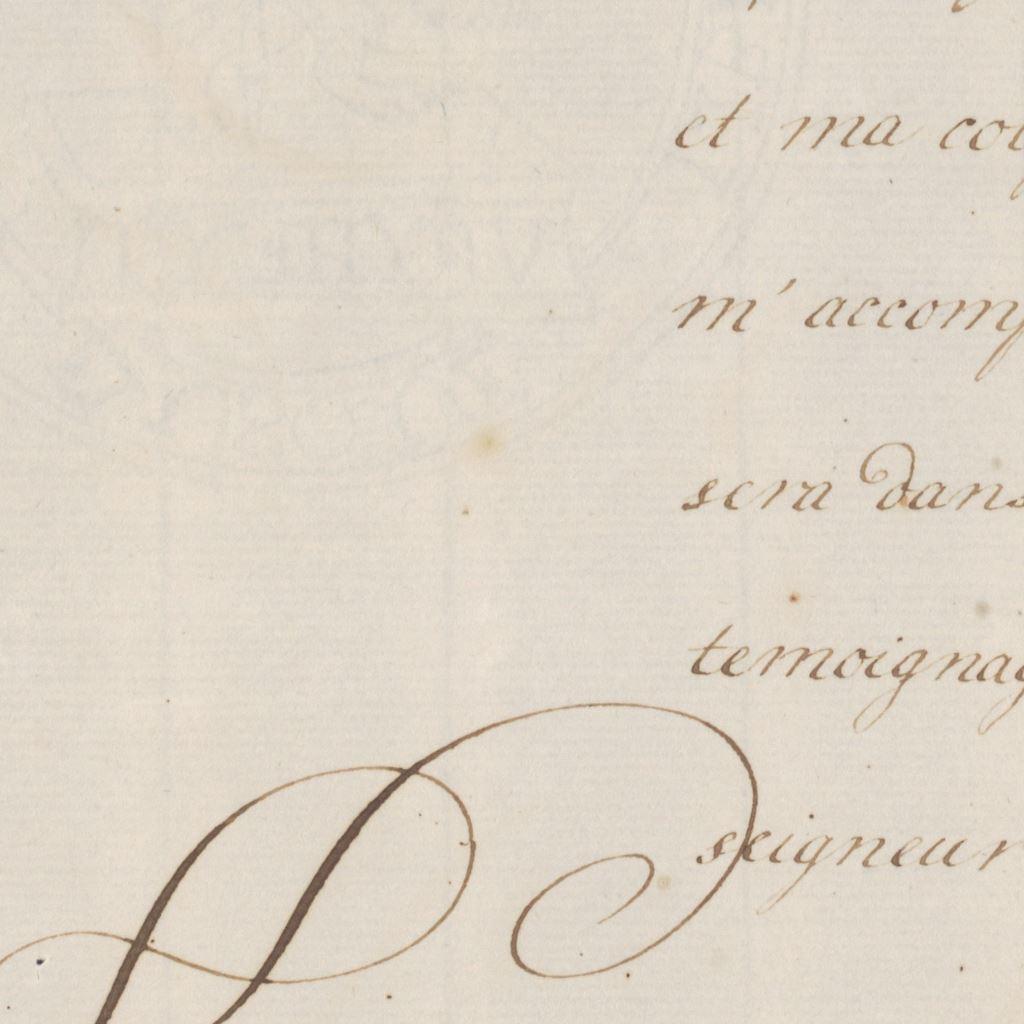 et ma co
m' accom
sera dans
temoignag
seigneur